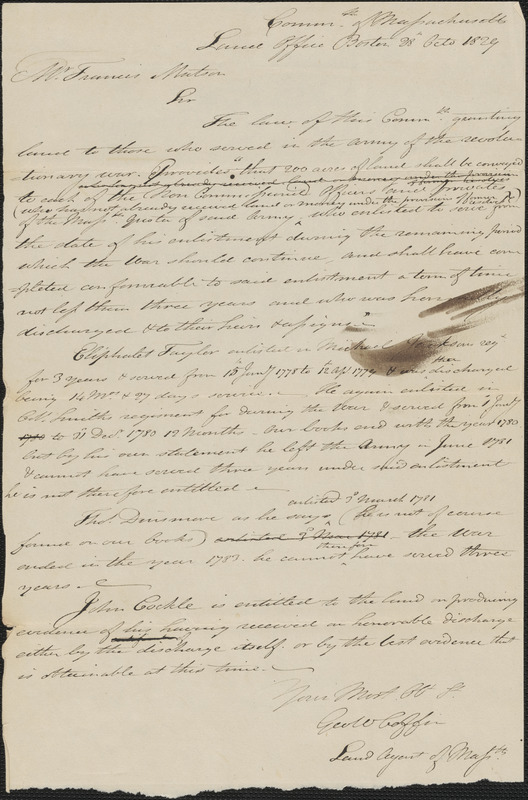 Commth of Massachusetts
Land Office Boston 28 Octo 1829
Mr Francis Matson
Sir
The law of this Commth granting
land to those who served in the army of the revolu-
tionary war. Provides "that 200 acres of land shall be conveyed
to each of the Non Commissioned Officers and Privates
(who has not already received land or money under the provisions
of the Massts Quota of said Army, who enlisted to serve from
the date of his enlistment during the remaining period
which the War should continue, and shall have com
pleted conformable to said enlistment a term of time
not less than three years and who was honorably
discharged & to their heirs & assigns"
Eliphalet Taylor enlisted in Michael Jackson regt
for 3 years & served from 15th Jany 1778 to 12 ap 1779 & was then discharged
being 14 Mos & 27 days service. He again enlisted in
Col. Smiths regiment for during the War & served from 1 Jany
to 31 Decr 1780 12 Months. our books end with the year 1780
but by his own statement he left the Army in June 1781
& cannot have served three years under said enlistment
he is not therefore entitled
Thos Dinsmore as he says enlisted 3d March 1781 (he is not of course
found on our books) enlisted 3d Mar 1781. the War
ended in the year 1783. he cannot therefore have served three
years.
John Cockle is entitled to the land on producing
evidence of his having received an honorable discharge
either by the discharge itself. or by the best evidence that
is attainable at this time.
Your Most Ob St.
Geo W Coffin
Land Agent of Massts